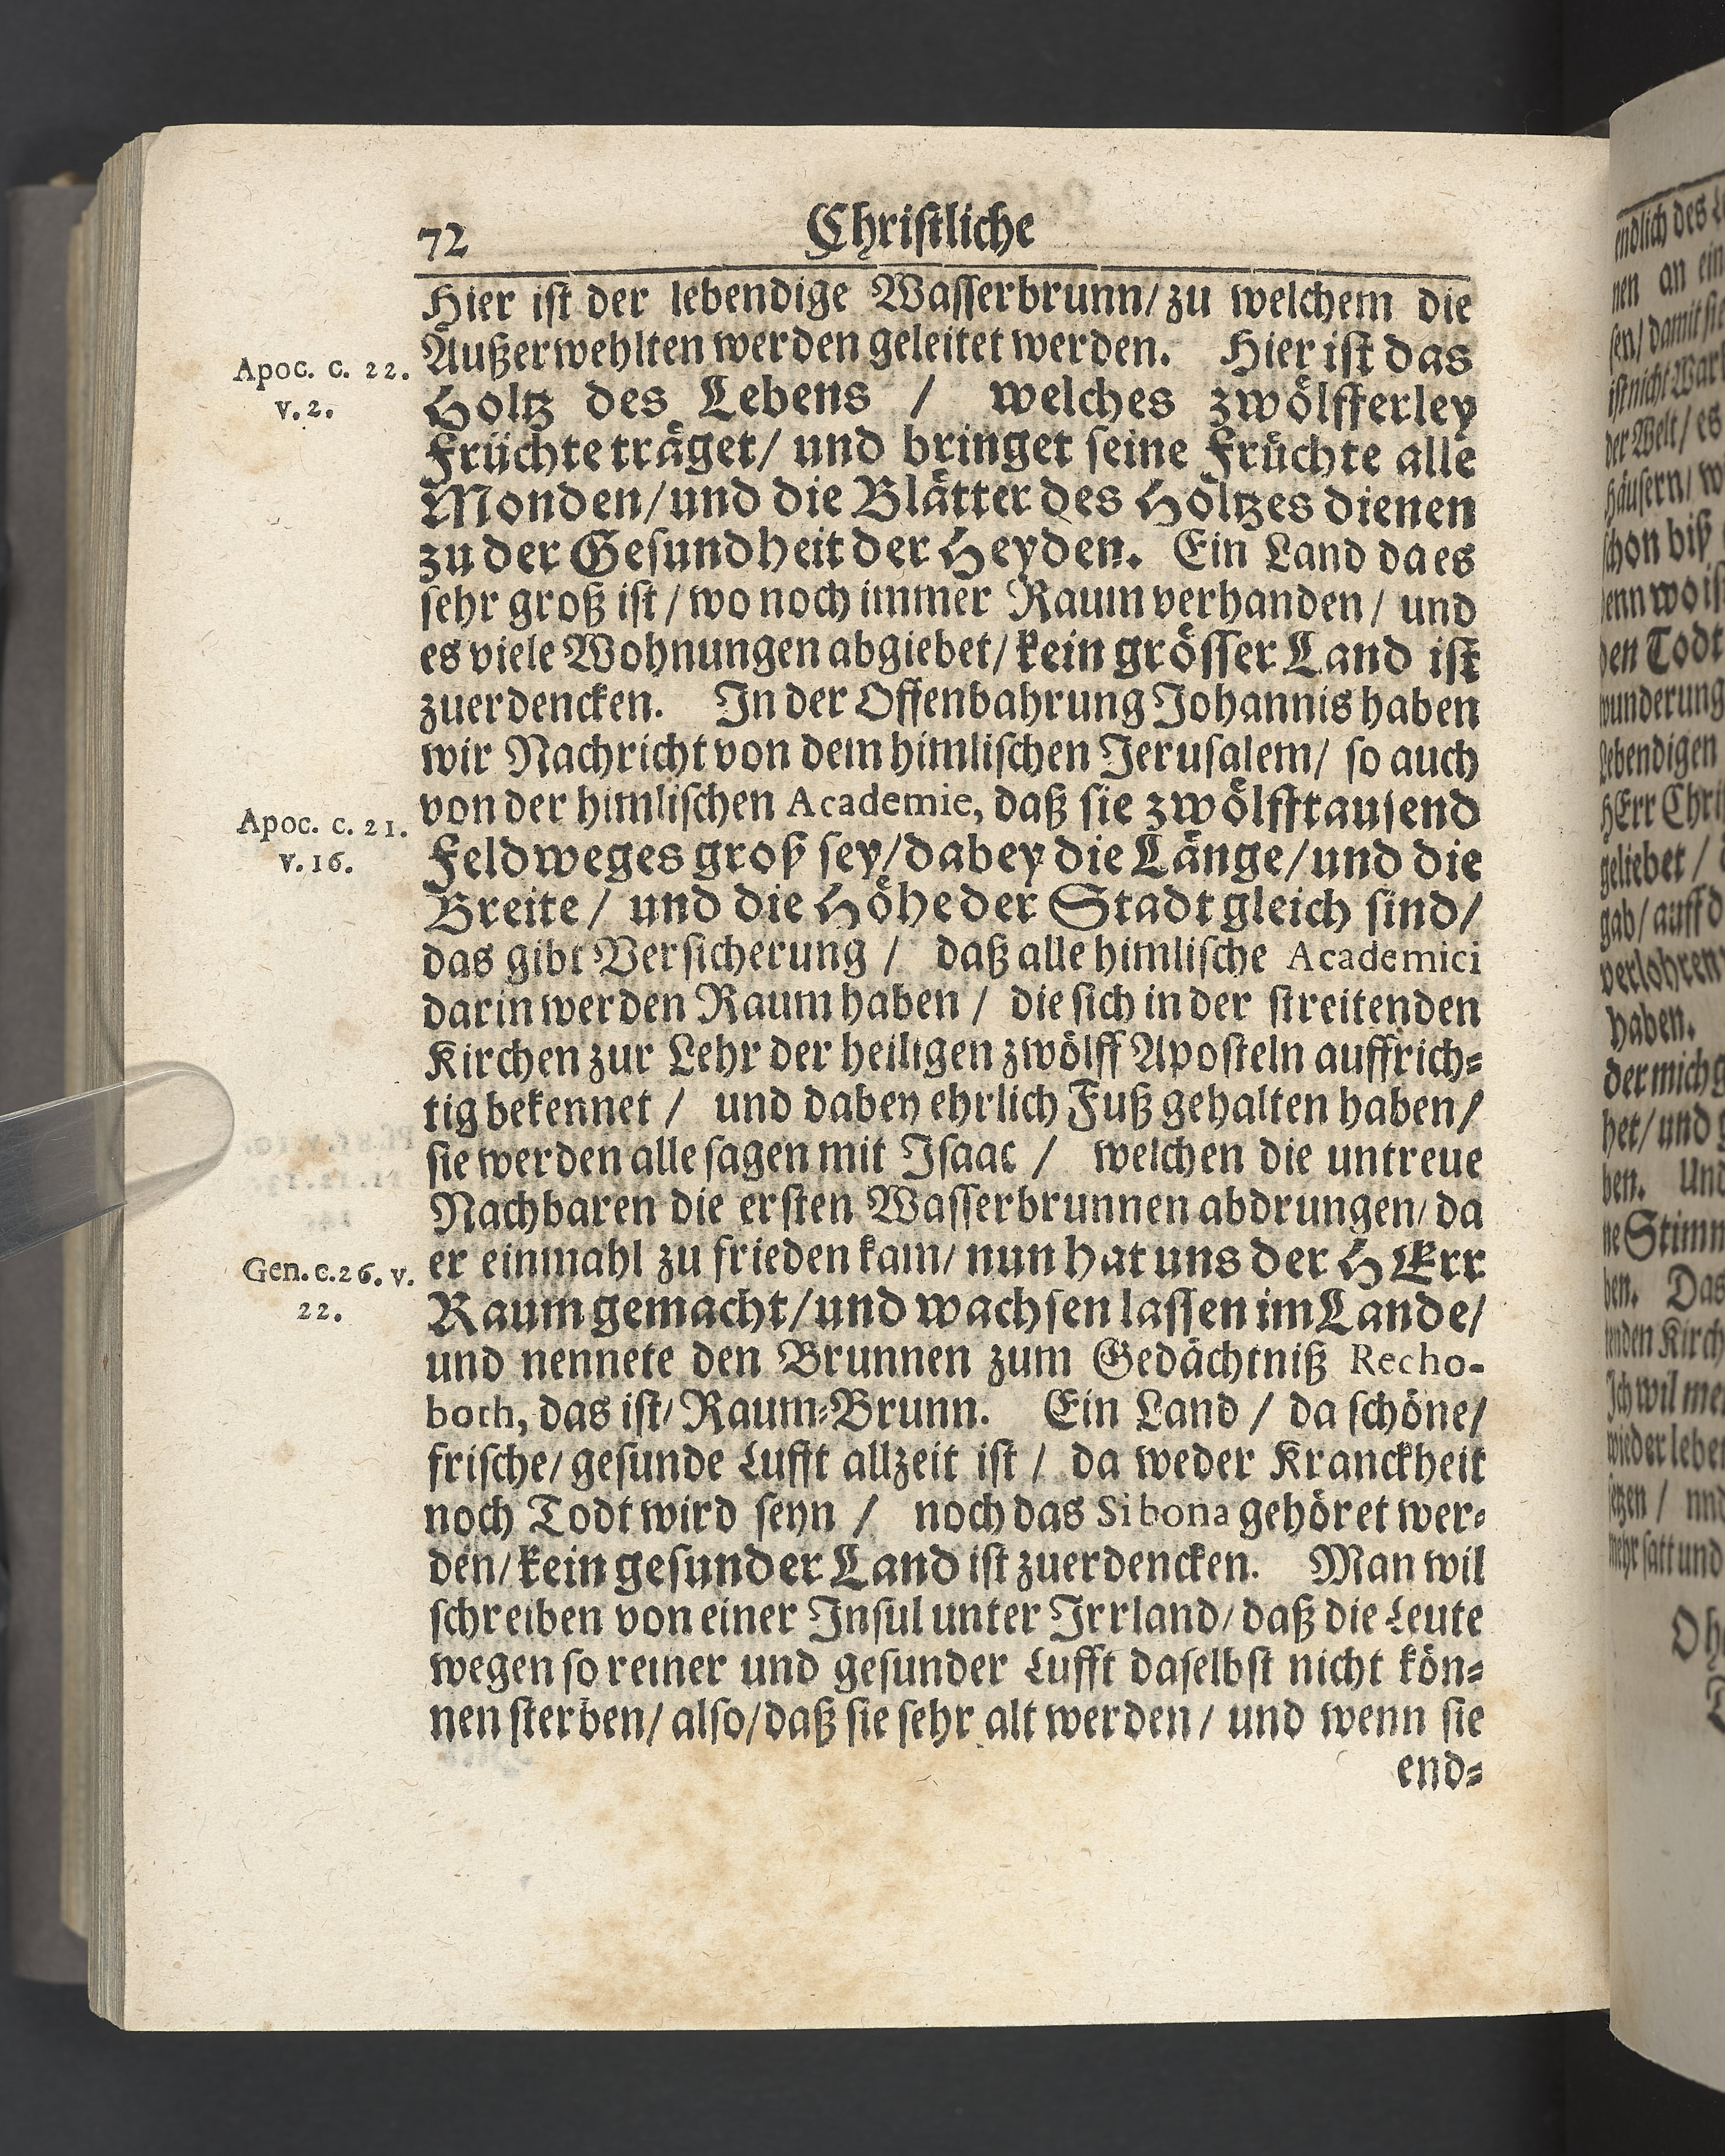 72 Christliche
Hier ist der lebendige Wasserbrunn/ zu welchem die
Außerwehlten werden geleitet werden. Hier ist das
Apoc. c. 22.
v. 2.
Holtz des Lebens / welches zwölfferley
Früchte träget/ und bringet seine Früchte alle
Monden/ und die Blätter des Höltzes dienen
zu der Gesundheit der Heyden. Ein Land da es
sehr groß ist / wo noch immer Raum verhanden / und
es viele Wohnungen abgiebet/ kein grösser Land ist
zuerdencken. In der Offenbahrung Johannis haben
wir Nachricht von dem himlischen Jerusalem/ so auch
von der himlischen Academie, daß sie zwölfftausend
Apoc. c. 21.
v. 16.
Feldweges groß sey/ dabey die Länge/ und die
Breite / und die Höhe der Stadt gleich sind/
das gibt Versicherung / daß alle himlische Academici
darin werden Raum haben / die sich in der streitenden
Kirchen zur Lehr der heiligen zwölff Aposteln auffrich⸗
tig bekennet / und dabey ehrlich Fuß gehalten haben/
sie werden alle sagen mit Isaac / welchen die untreue
Nachbaren die ersten Wasserbrunnen abdrungen/ da
er einmahl zu frieden kam/ nun hat uns der HErr
Gen. c. 26. v.
22.
Raum gemacht/ und wachsen lassen im Lande/
und nennete den Brunnen zum Gedächtniß Recho-
both, das ist/ Raum⸗Brunn. Ein Land / da schöne/
frische/ gesunde Lufft allzeit ist / da weder Kranckheit
noch Todt wird seyn / noch das Sibona gehöret wer⸗
den/ kein gesunder Land ist zuerdencken. Man wil
schreiben von einer Insul unter Irrland/ daß die Leute
wegen so reiner und gesunder Lufft daselbst nicht kön⸗
nen sterben/ also/ daß sie sehr alt werden / und wenn sie
end⸗